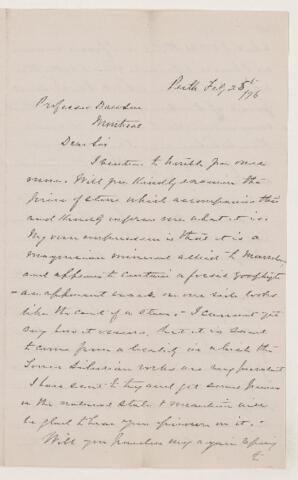 Perth Feb 28th/76
Professor Dawson
Montreal
Dear Sir
I venture to trouble you once
more. Will you kindly examine the
piece of stone which accompanies this
and kindly inform me what it is.
My own impression is that it is a
magnesian mineral allied to
and appears to contain a fossil zoophyte
- an apparent mark on one side looks
like the end of a stem. I cannot
say how it occurs, but it is said
to come from a locality in which the
Lower Silurian rocks are very prevalent
I have sent to try and get some pieces
in the natural state & meantime will
be glad to have your opinion on it.
Will you pardon my again